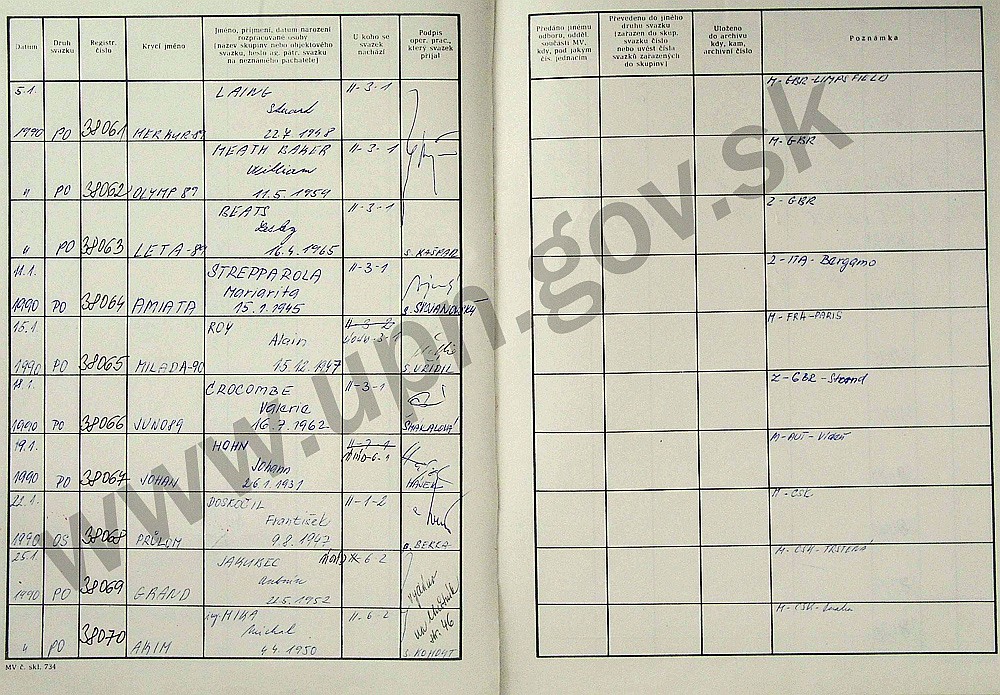 Datum
Druh svazku
Registr. číslo
Krycí jméno
Jméno, příjmení, datum narození
rozpracované osoby
[název skupiny nebo objektového
svazku, heslo ag. pátr. svazku
na neznámého pachatele]
U koho se
svazek
nachází
Podpis
oper. prac.,
který svazek
přijal
Předáno jinému
odboru, odděl.
součásti MV,
kdy, pod jakým
čís. jednacím
Převedeno do jiného
druhu svazku
[zařazen do skup.
svazku číslo
nebo uvést čísla
svazků zařazených
do skupiny]
Uloženo
do archivu
kdy, kam,
archivní číslo
Poznámka
5.1. LAING II-3-1 M-GBR-LIMPSFIELD
22.7.1948
1990 PO 38061 MERKUR-89
MEATH BAKER II-3-1 M-GBR
William
" PO 38062 OLYMP 89 11.5.1959
BEATS II-3-1 Z-GBR
Lesley
" PO 38063 LETA-89 16.4.1965 S. KAŠPAR
11.1. STREPPAROLA II-3-1 Z-ITA-Bergamo
Mariarita
1990 PO 38064 AMIATA 15.1.1945
15.1. ROY II-3-2 M-FRA-PARIS
Alain
1990 PO 38065 MILADA-90 15.12.1947 S. VŘÍDIL
CROCOMBE II-3-1 Z-GBR-Strand
Valerie
1990 PO 38066 JUNO89 16.7.1962 ŠMAKALOVÁ
19.1. HOHN M-AUT-Vídeň
Johann
1990 PO 38067 JOHAN 26.1.1931 HÁJEK
22.1. DOSKOČIL II-1-2 M-ČSK
František
1990 OS 38068 PRŮLOM 9.8.1947
25.1. JAKUBEC M-ČSK-TRSTENÁ
1990 PO 38069 GRAND 21.5.1952
ing. MIKA II-6-2
Michal
" PO 38070 AKIM 4.4.1950 S. KOHOUT
str. 46
MV č. skl. 734
www.upn.gov.sk